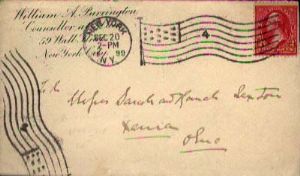 William A. Purrington
Counsellor a
59 Wall
New York City
NEW YORK
DEC 20
2-PM
99
N.Y.
4
Misses Sarah and Hannah Sexton
Xenia
Ohio